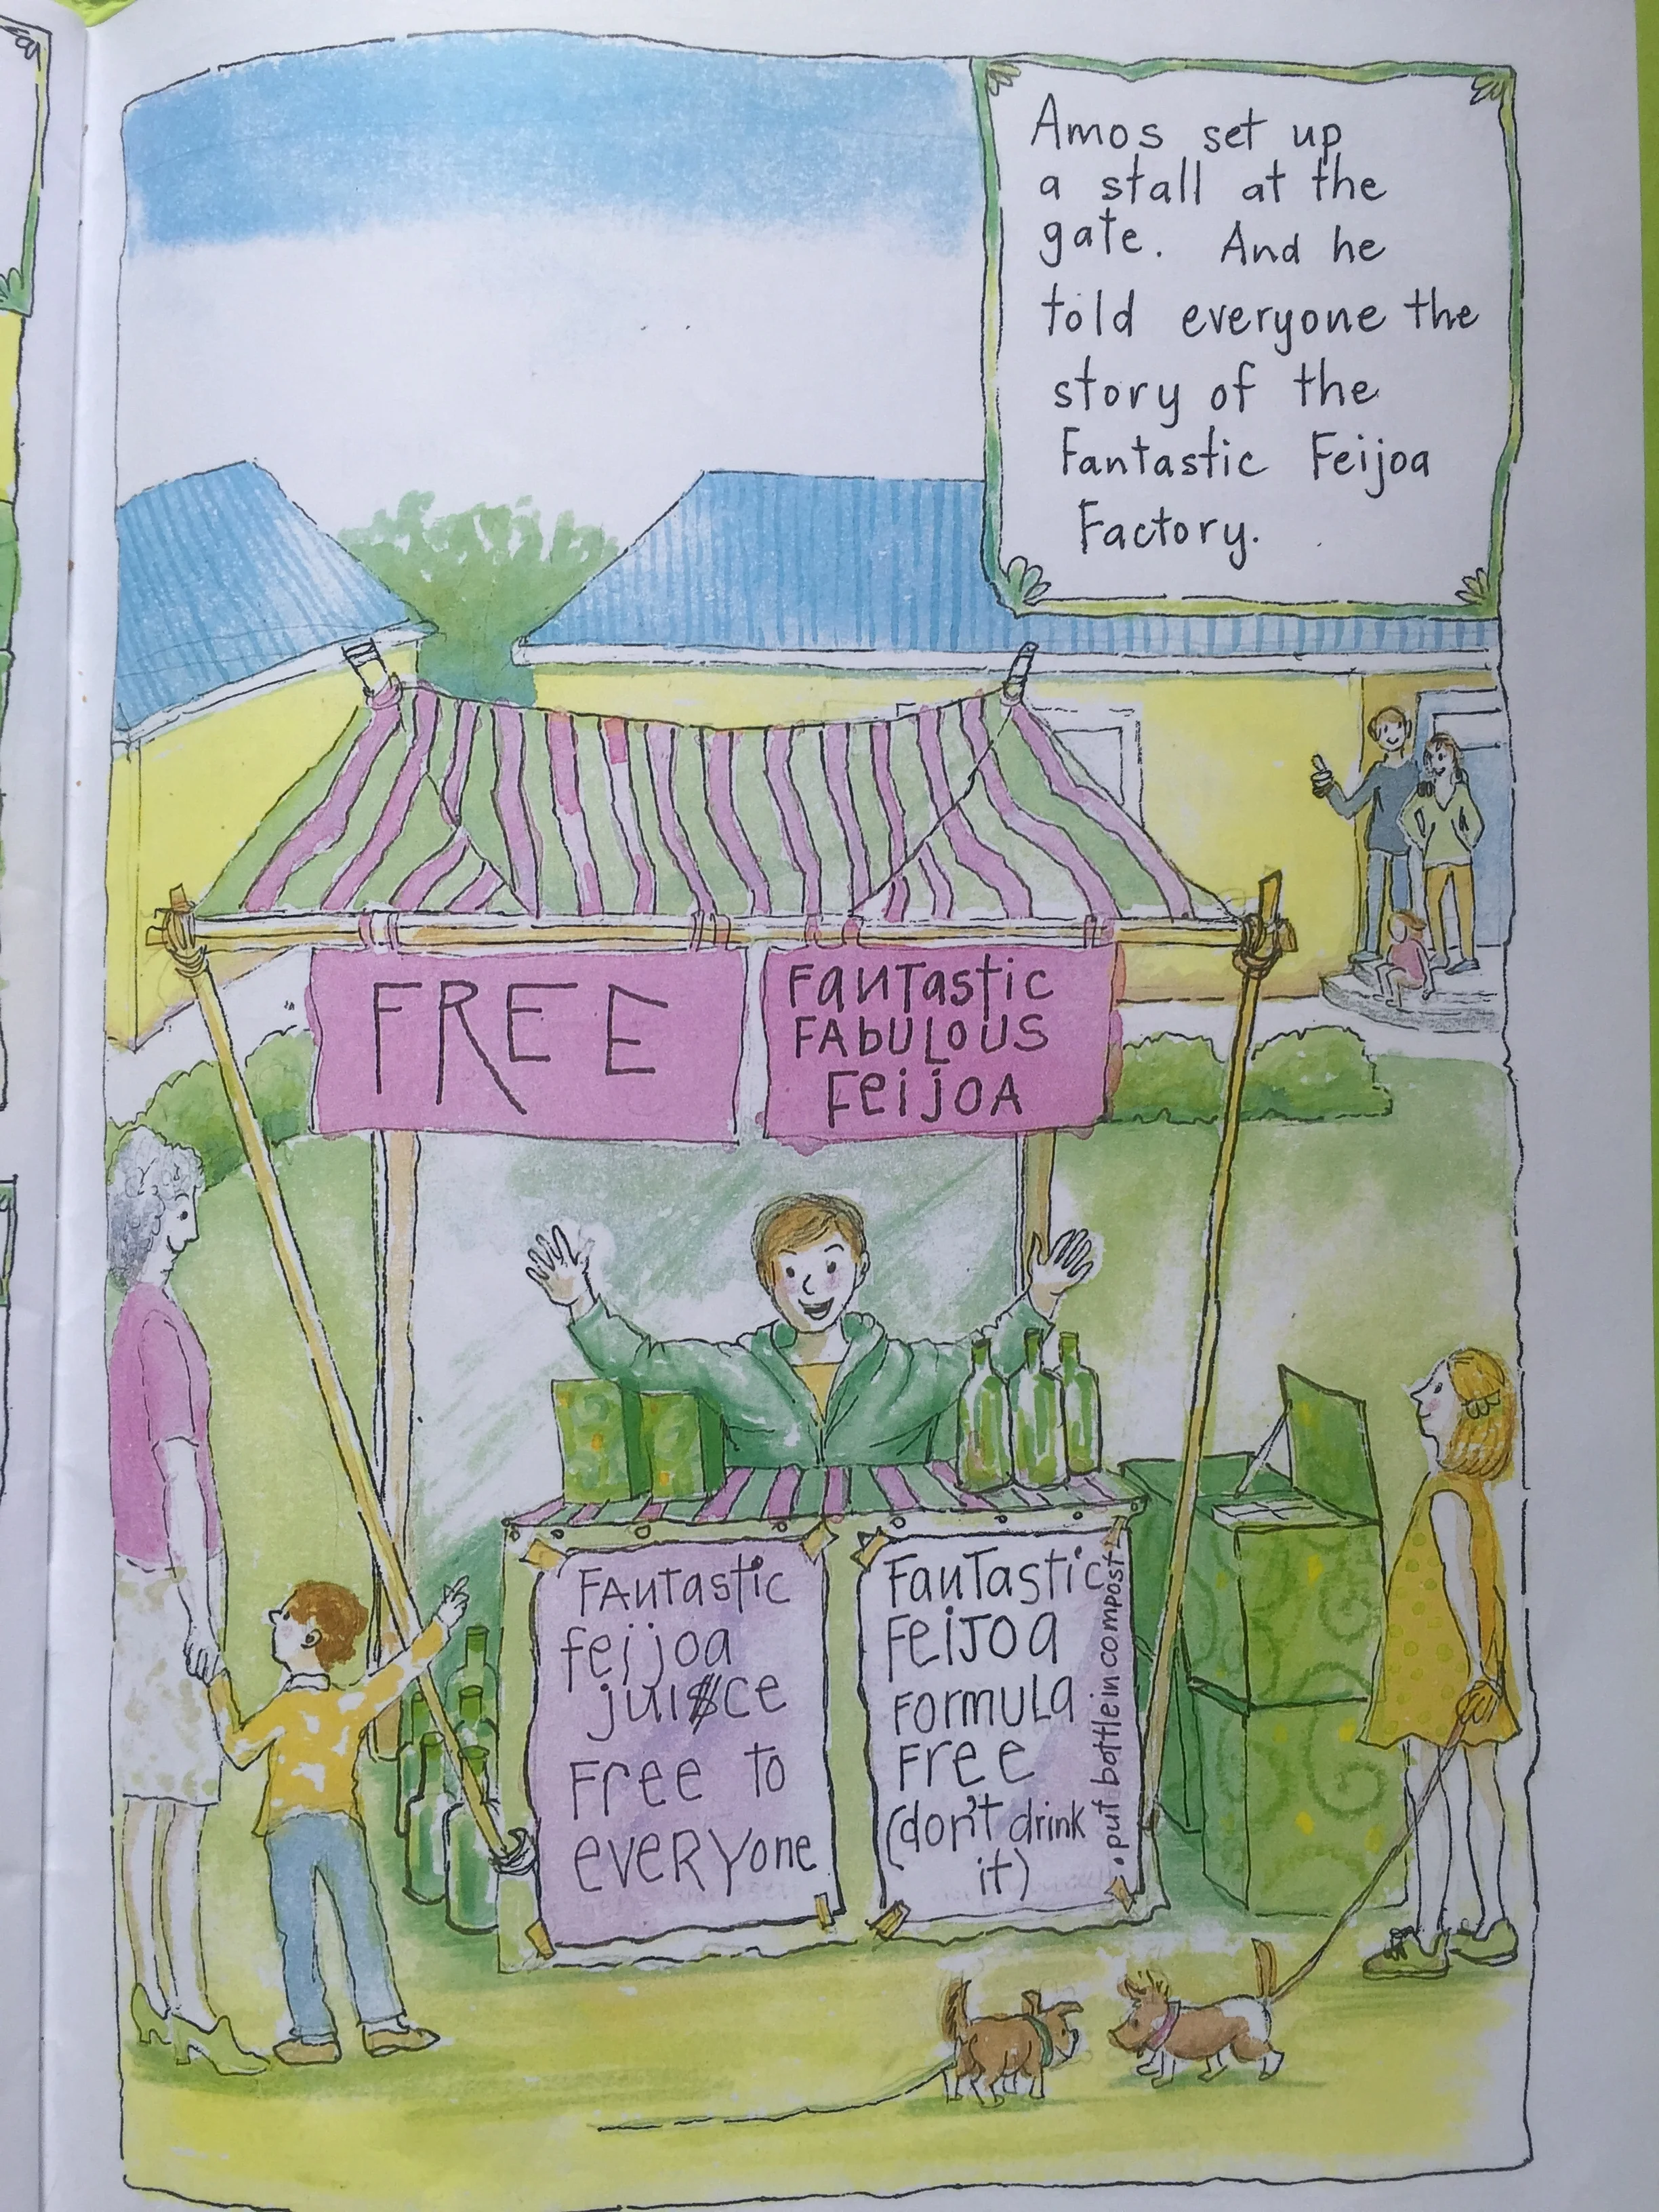 Amos set up
a stall at the
gate. And he
told everyone the
story of the
Fantastic Feijoa
Factory.
FREE
FanTastic
FAbULOUS
FeijoA
FAntastic
feijoa
jui$ce
Free to
eveRYone
FanTastic
FeiJoa
FormuLa
Free
(don't drink
it)
•put bottle in compost